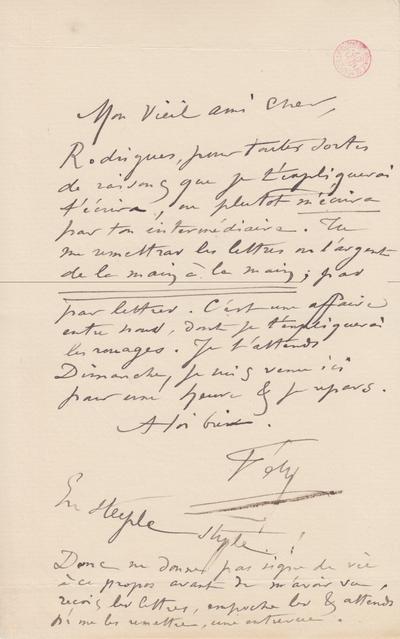 Mon Vieil ami cher,
Rodrigues, pour toutes sortes
de raisons que je t'expliquerai
t'écrira, ou plutot m'écrira
par ton intermédiaire. Tu
me remettras les lettres ou l'argent
de la main à la main; pas
par lettres. C'est une affaire
entre nous, dont je t'expliquerai
les rouages. Je t'attends
Dimanche, je suis venu ici
pour une heure & je repars.
A toi bien.
Fély
En steeple style!
Donc ne donne pas signe de vie
à ce propos avant de m'avoir vu,
reçois les lettres, empoche les & attends
de me les remettre, une entrevue.